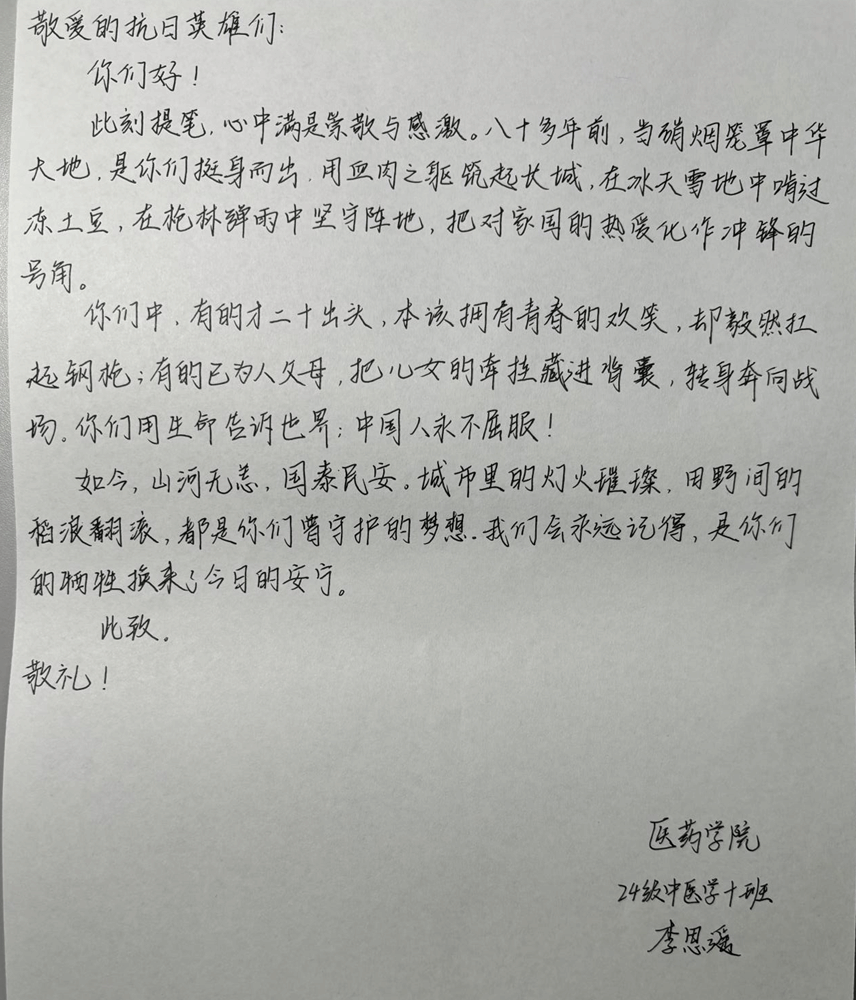 敬爱的抗日英雄们:
你们好!
此刻提笔,心中满是崇敬与感激。八十多年前,当硝烟笼罩中华
大地,是你们挺身而出,用血肉之躯筑起长城,在冰天雪地中啃过
冻土豆,在枪林弹雨中坚守阵地,把对家国的热爱化作冲锋的
号角。
你们中,有的才二十出头,本该拥有青春的欢笑,却毅然扛
起钢枪;有的已为人父母,把儿女的牵挂藏进背囊,转身奔向战
场。你们用生命告诉世界:中国人永不屈服!
如今,山河无恙,国泰民安。城市里的灯火璀璨,田野间的
稻浪翻滚,都是你们曾守护的梦想.我们会永远记得,是你们
的牺牲换来了今日的安宁。
此致.
敬礼!
医药学院
24级中医学十班
李思瑶